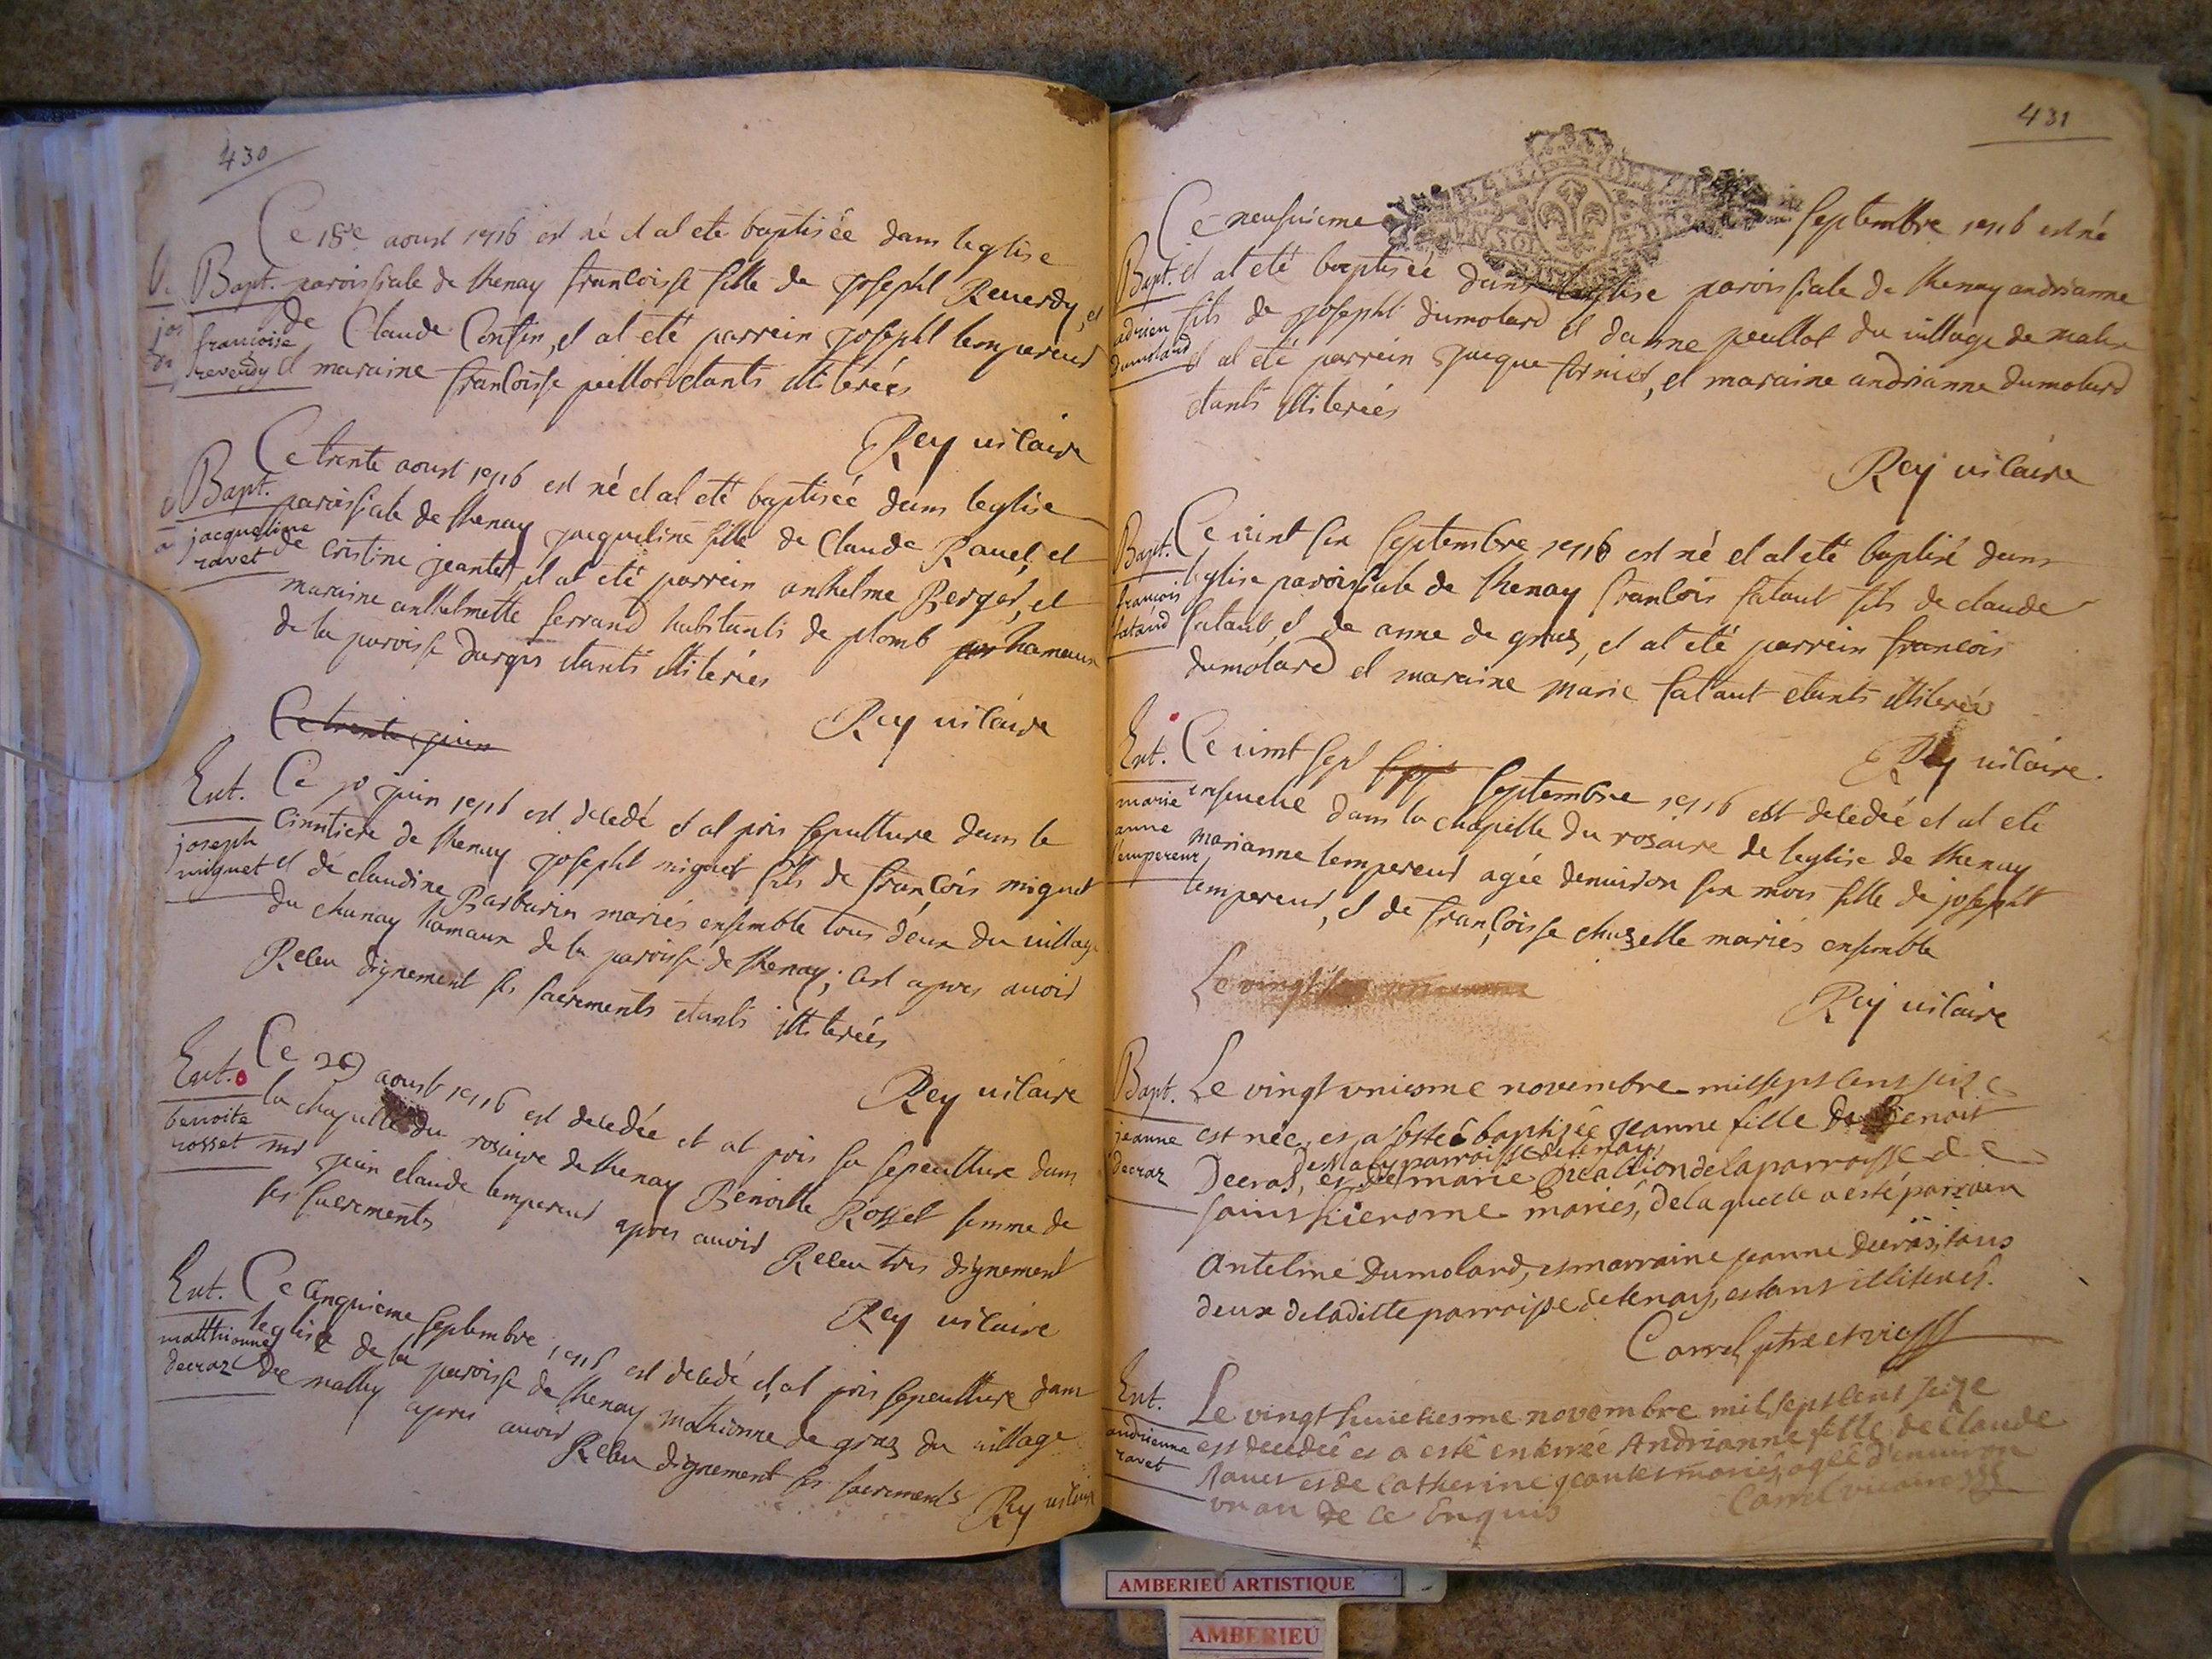 430
Ce 18e aoust 1716 est né et at eté baptisée dans leglise
Bapt. paroissiale de thenay francoisse fille de Josepht Reverdy, et
francoise reverdy
de Claude Confin, et at eté parrein Josepht lempereur
et maraine francoisse peillot etants illiterées
Rey vicaire
Ce trente aoust 1716 est né et at eté baptisée dans leglise
Bapt. paroissiale de thenay jacqueline fille de Claude Ravet, et
jacqueline ravet
de cristine jeantet et at eté parrein anthelme Berger, et
maraine anthelmette ferrand habitants de plomb hameaux
de la paroisse dargis etants illiterées
Rey vicaire
Ce trente juin
Ent. Ce 30 juin 1716 est decedé et at pris sepulture dans le
joseph miguet
cimetiere de thenay Josepht miguet fils de françois miguet
et de claudine Barbarin mariés ensemble tous deux du village
du chanay hamaux de la paroisse de thenay; cest apres avoir
Receu dignement ses sacrements etants illiterées
Rey vicaire
Ent. Ce 29 aoust 1716 est decedée et at pris sa sepeulture dans
benoite rosset
la chapelle du rosaire de thenay Benoitte Rosset femme de
jean claude lempereur apres avoir Receu tres dignement
ses sacrements
Rey vicaire
Ent. Ce Cinquieme septembre 1716 est decedé et at pris sepeulture dans
matthionne decraz
leglise de la paroisse de thenay mathionne de graz du village
de malley apres avoir Receu dignement ses sacrements
Rey vicaire
431
Ce neufuieme septembre 1716 est né
Bapt. et at eté baptiseé dans leglise paroissiale de thenay andrianne
adrien dumolard
fils de Josepht dumolard et danne peullot du village de
et at eté parrein jacque fornier, et maraine andrianne dumolard
etants illiterées
Rey vicaire
Bapt. Ce vint six septembre 1716 est né et at eté baptisé dans
françois
leglise paroissiale de thenay francois fataut fils de claude
fataut, et de anne de graz, et at eté parrein francois
dumolard et maraine marie fataut etants illiterées
Rey vicaire.
Ent. Ce vint sept septembre 1716 est decedeé et at eté
marie anne l'empereur
ensevelie dans la chapelle du rosaire de leglise de thenay
marianne lempereur agée denviron six mois fille de josepht
lempereur, et de françoisse chazelle mariés ensemble
Rey vicaire
Le vingt
Bapt. Le vingt vniesme novembre mil sept cens seize
jeanne decraz
est née, et a esté baptisée jeanne fille de Benoit
de Maley parroisse de tenay
Decras, et de marie de la parroisse de
saint hierome mariés, de laquelle a esté parrain
Antelme Dumolard, et marraine jeanne Decras, tous
deux de laditte parroisse de tenay, estans illiterés.
Carrel ptre et vic
Ent. Le vingt huictiesme novembre mil sept cens seize
andrienne ravet
est decedeé et a esté enterrée Andrianne fille de Claude
Ravet et de Catherine jeantet mariés, agée d'environ
vn an de ce Enquis
Carrel vicaire
AMBERIEU ARTISTIQUE
AMBERIEU